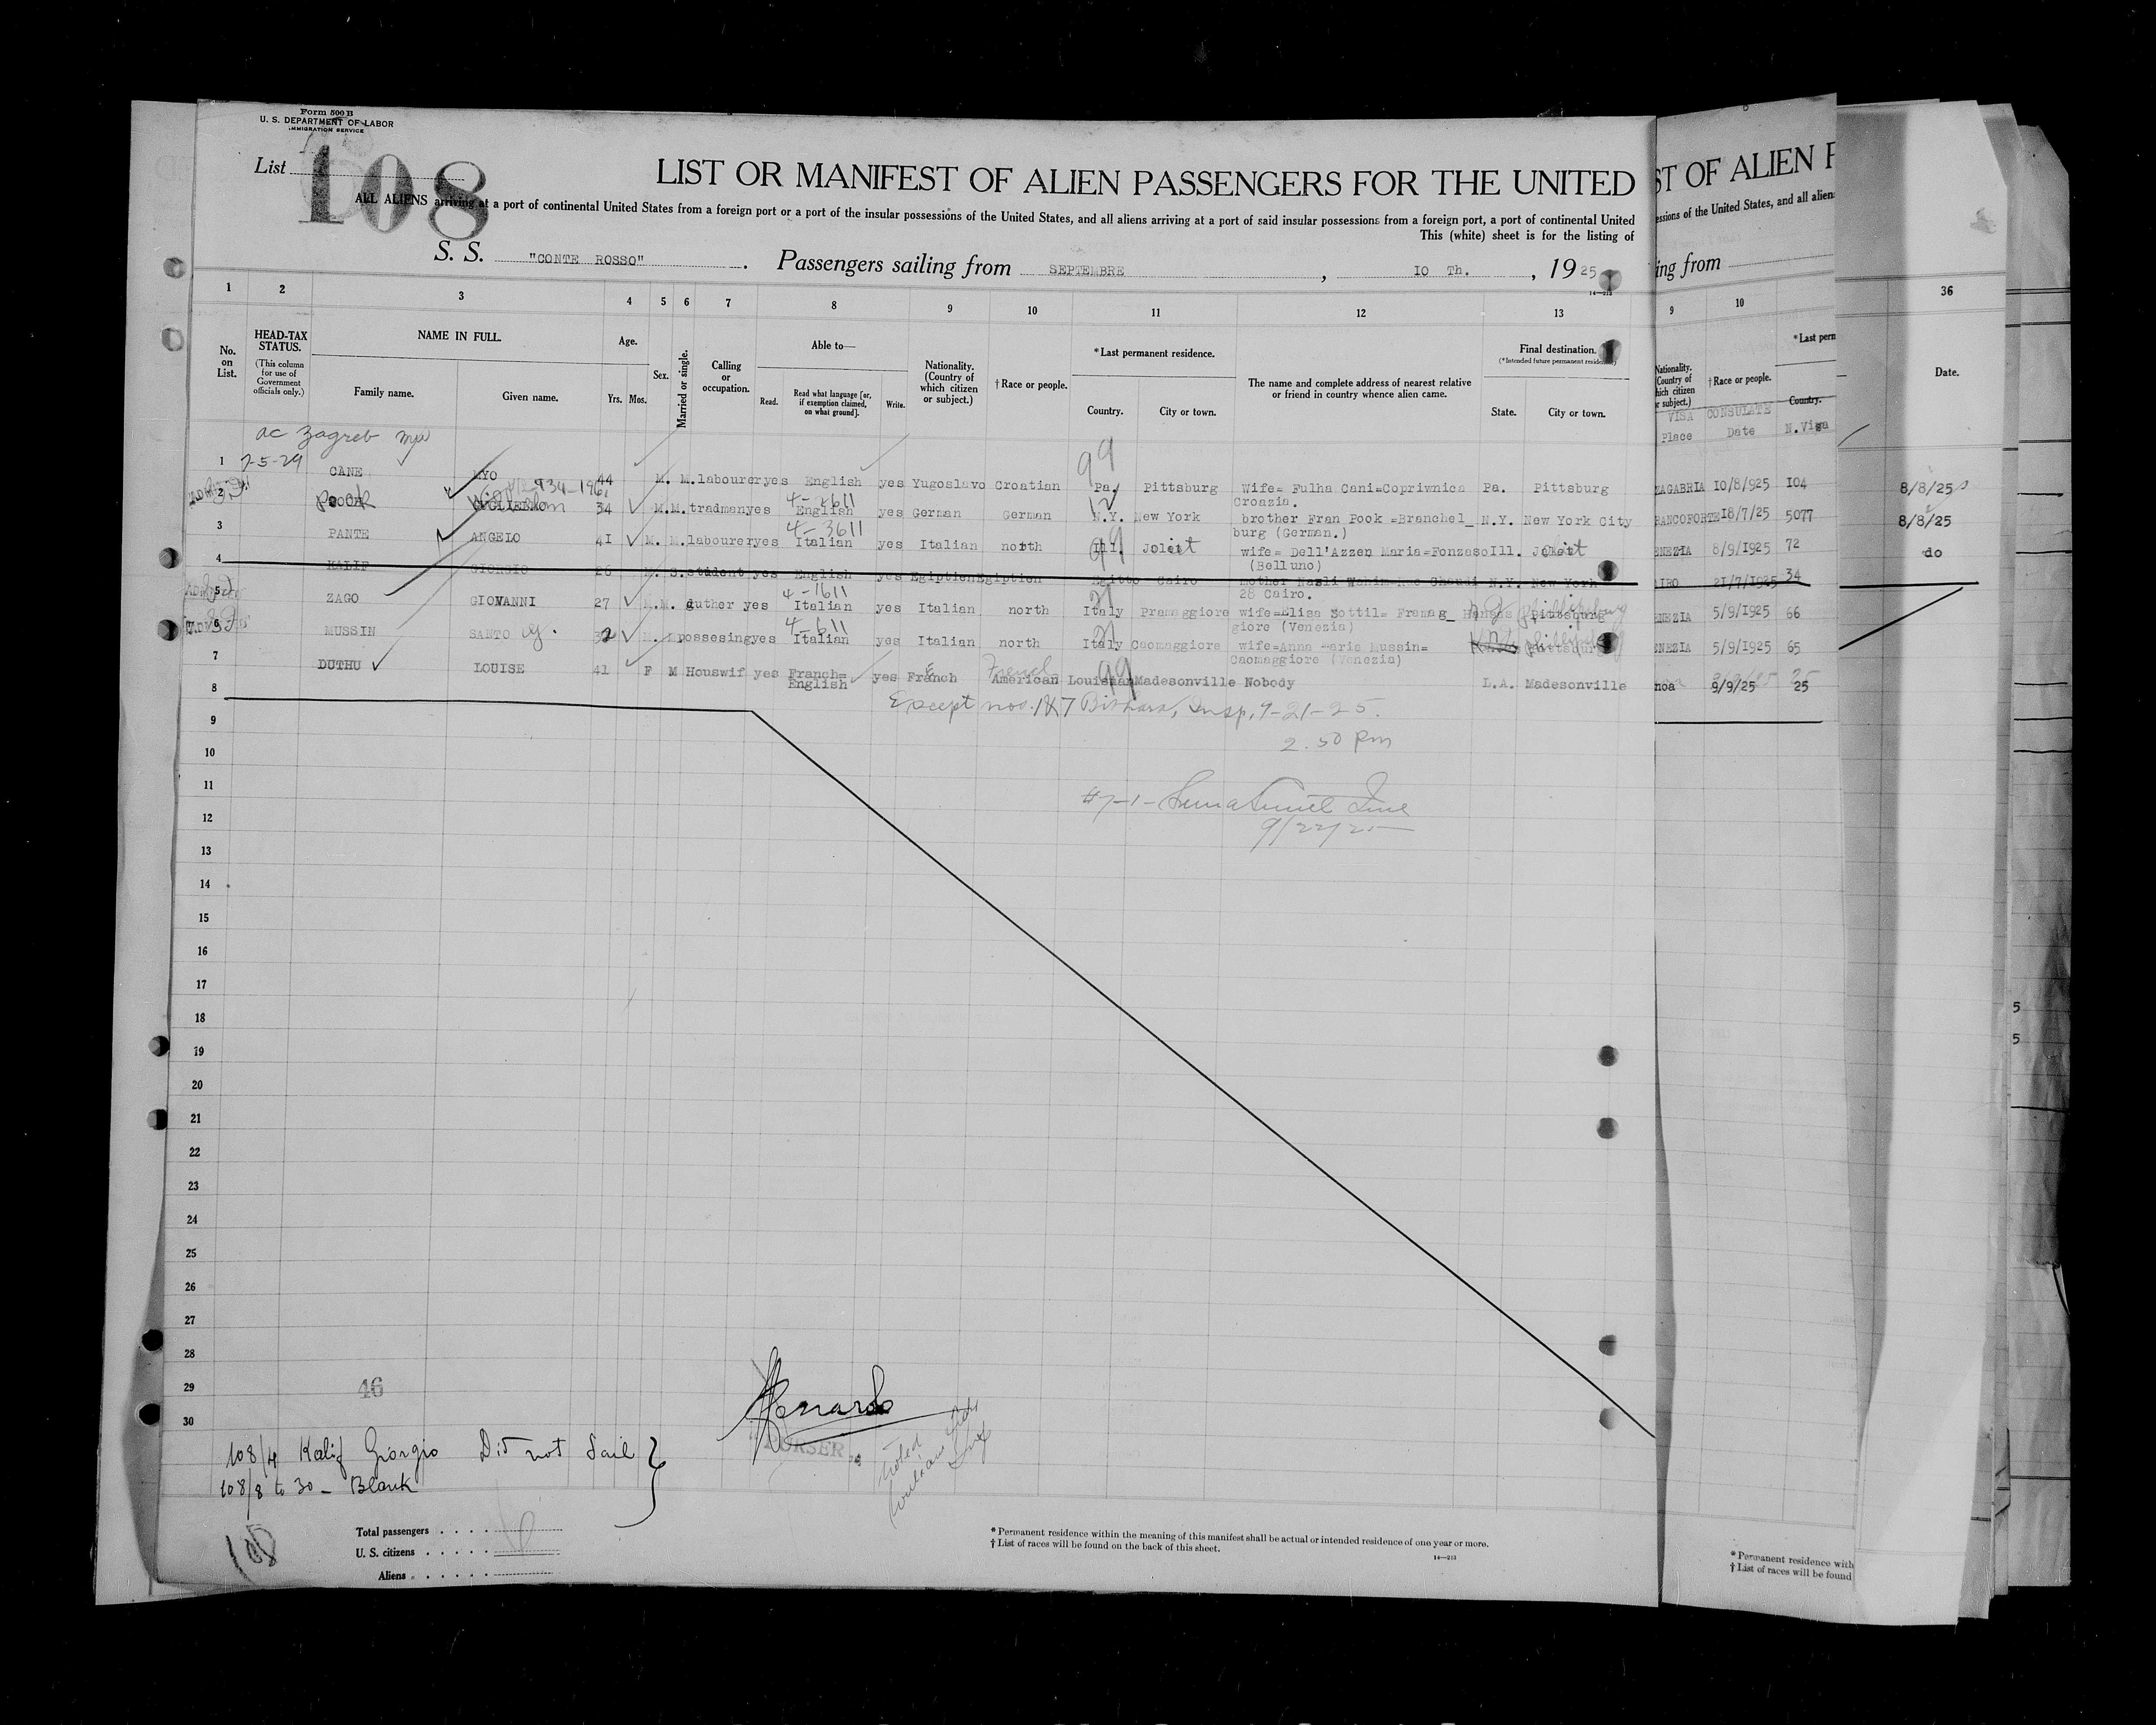 Form 500 B
U. S. DEPARTMENT OF LABOR
IMMIGRATION SERVICE
List 108
LIST OR MANIFEST OF ALIEN PASSENGERS FOR THE UNITED
ALL ALIENS arriving at a port of continental United States from a foreign port or a port of the insular possessions of the United States, and all aliens arriving at a port of said insular possessions from a foreign port, a port of continental United
This (white) sheet is for the listing of
S. S. "CONTE ROSSO". Passengers sailing from SEPTEMBRE, IO Th., 1925
1 2 3 4 5 6 7 8 9 10 11 12 13
No. on List.
HEAD-TAX STATUS.
(This column for use of Government officials only.)
NAME IN FULL.
Family name.
Given name.
Age.
Yrs. Mos.
Sex.
Married or single.
Calling or occupation.
Able to—
Read.
Read what language [or, if exemption claimed, on what ground].
Write.
Nationality. (Country of which citizen or subject.)
† Race or people.
* Last permanent residence.
Country.
City or town.
The name and complete address of nearest relative or friend in country whence alien came.
Final destination.
(*Intended future permanent residence)
State.
City or town.
ac Zagreb
7-5-29
1 CANE MYO 44 M. M. labourer yes English yes Yugoslavo Croatian Pa. Pittsburg Wife= Fulha Cani=Copriwnica Pa. Pittsburg
Croazia.
4-2611
2 34 M. M. tradman yes English yes German German N.Y. New York brother Fran Pook =Branchel_ N.Y. New York City
burg (German.)
4-3611
3 PANTE ANGELO 41 M. M. labourer yes Italian yes Italian north Ill. Joliet wife= Dell'Azzen Maria=Fonzaso Ill. Joliet
(Belluno)
4 KALIF GIORGIO 26 M. S. student yes English yes Egiptien Egiptien Egitto Cairo mother N.Y. New York
28 Cairo.
4-1611
5 ZAGO GIOVANNI 27 M. M. yes Italian yes Italian north Italy Pramaggiore wife=Elisa Bottil= Pramag_
giore (Venezia)
4-611
6 MUSSIN SANTO G. 32 M. possesing yes Italian yes Italian north Italy Caomaggiore wife=Anna Maria Mussin=
Caomaggiore (Venezia)
7 DUTHU LOUISE 41 F M Houswif yes Franch=English yes French American French Louisiana Madesonville Nobody L.A. Madesonville
8
Except nos. 1 & 7 Insp, 9-21-25.
2.50 Pm
9
10
11
12
9/22/25
13
14
15
16
17
18
19
20
21
22
23
24
25
26
27
28
29
46
30
108/4 Kalif Giorgio Did not Sail
108/8 to 30 - Blank
"PURSER"
noted
108
Total passengers
U. S. citizens
Aliens
* Permanent residence within the meaning of this manifest shall be actual or intended residence of one year or more.
† List of races will be found on the back of this sheet.
14—213
ST OF ALIEN P
essions of the United States, and all alien
ing from
9 10
Nationality.
† Race or people.
* Last perm
Country.
VISA CONSULATE
Place Date N. Visa
ZAGABRIA 10/8/925 104
RANCOFORTE 18/7/25 5077
ENEZIA 8/9/1925 72
AIRO 21/7/1925 34
ENEZIA 5/9/1925 66
ENEZIA 5/9/1925 65
noa 9/9/25 25
* Permanent residence with
† List of races will be found
36
Date.
8/8/25
8/8/25
do
5
5